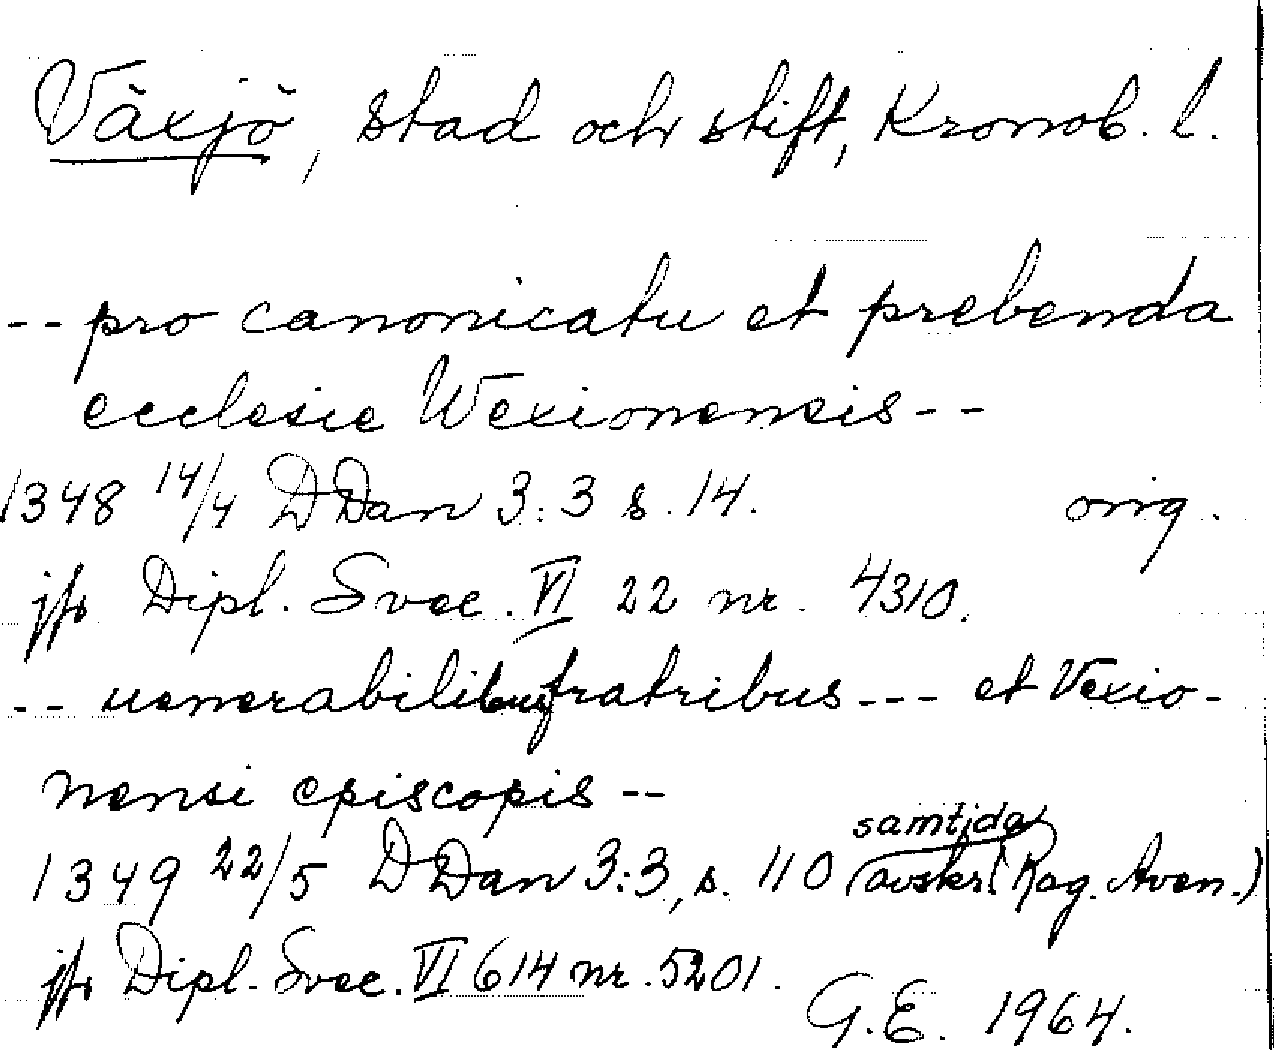 Växjö, stad och stift, Kronob. l.
-- pro canonicatu et prebenda
ecclesie Wexionensis --
1348 14/4 DDan 3:3 s. 14. orig.
jfr Dipl. Svec. VI 22 nr. 4310.
-- uenerabilibus fratribus --- et Vexio-
nensi episcopis --
samtida
1349 22/5 DDan 3:3, s. 110 (avskr. (Reg. Aven.)
jfr Dipl. Svec. VI 614 nr. 5201.
G.E. 1964.